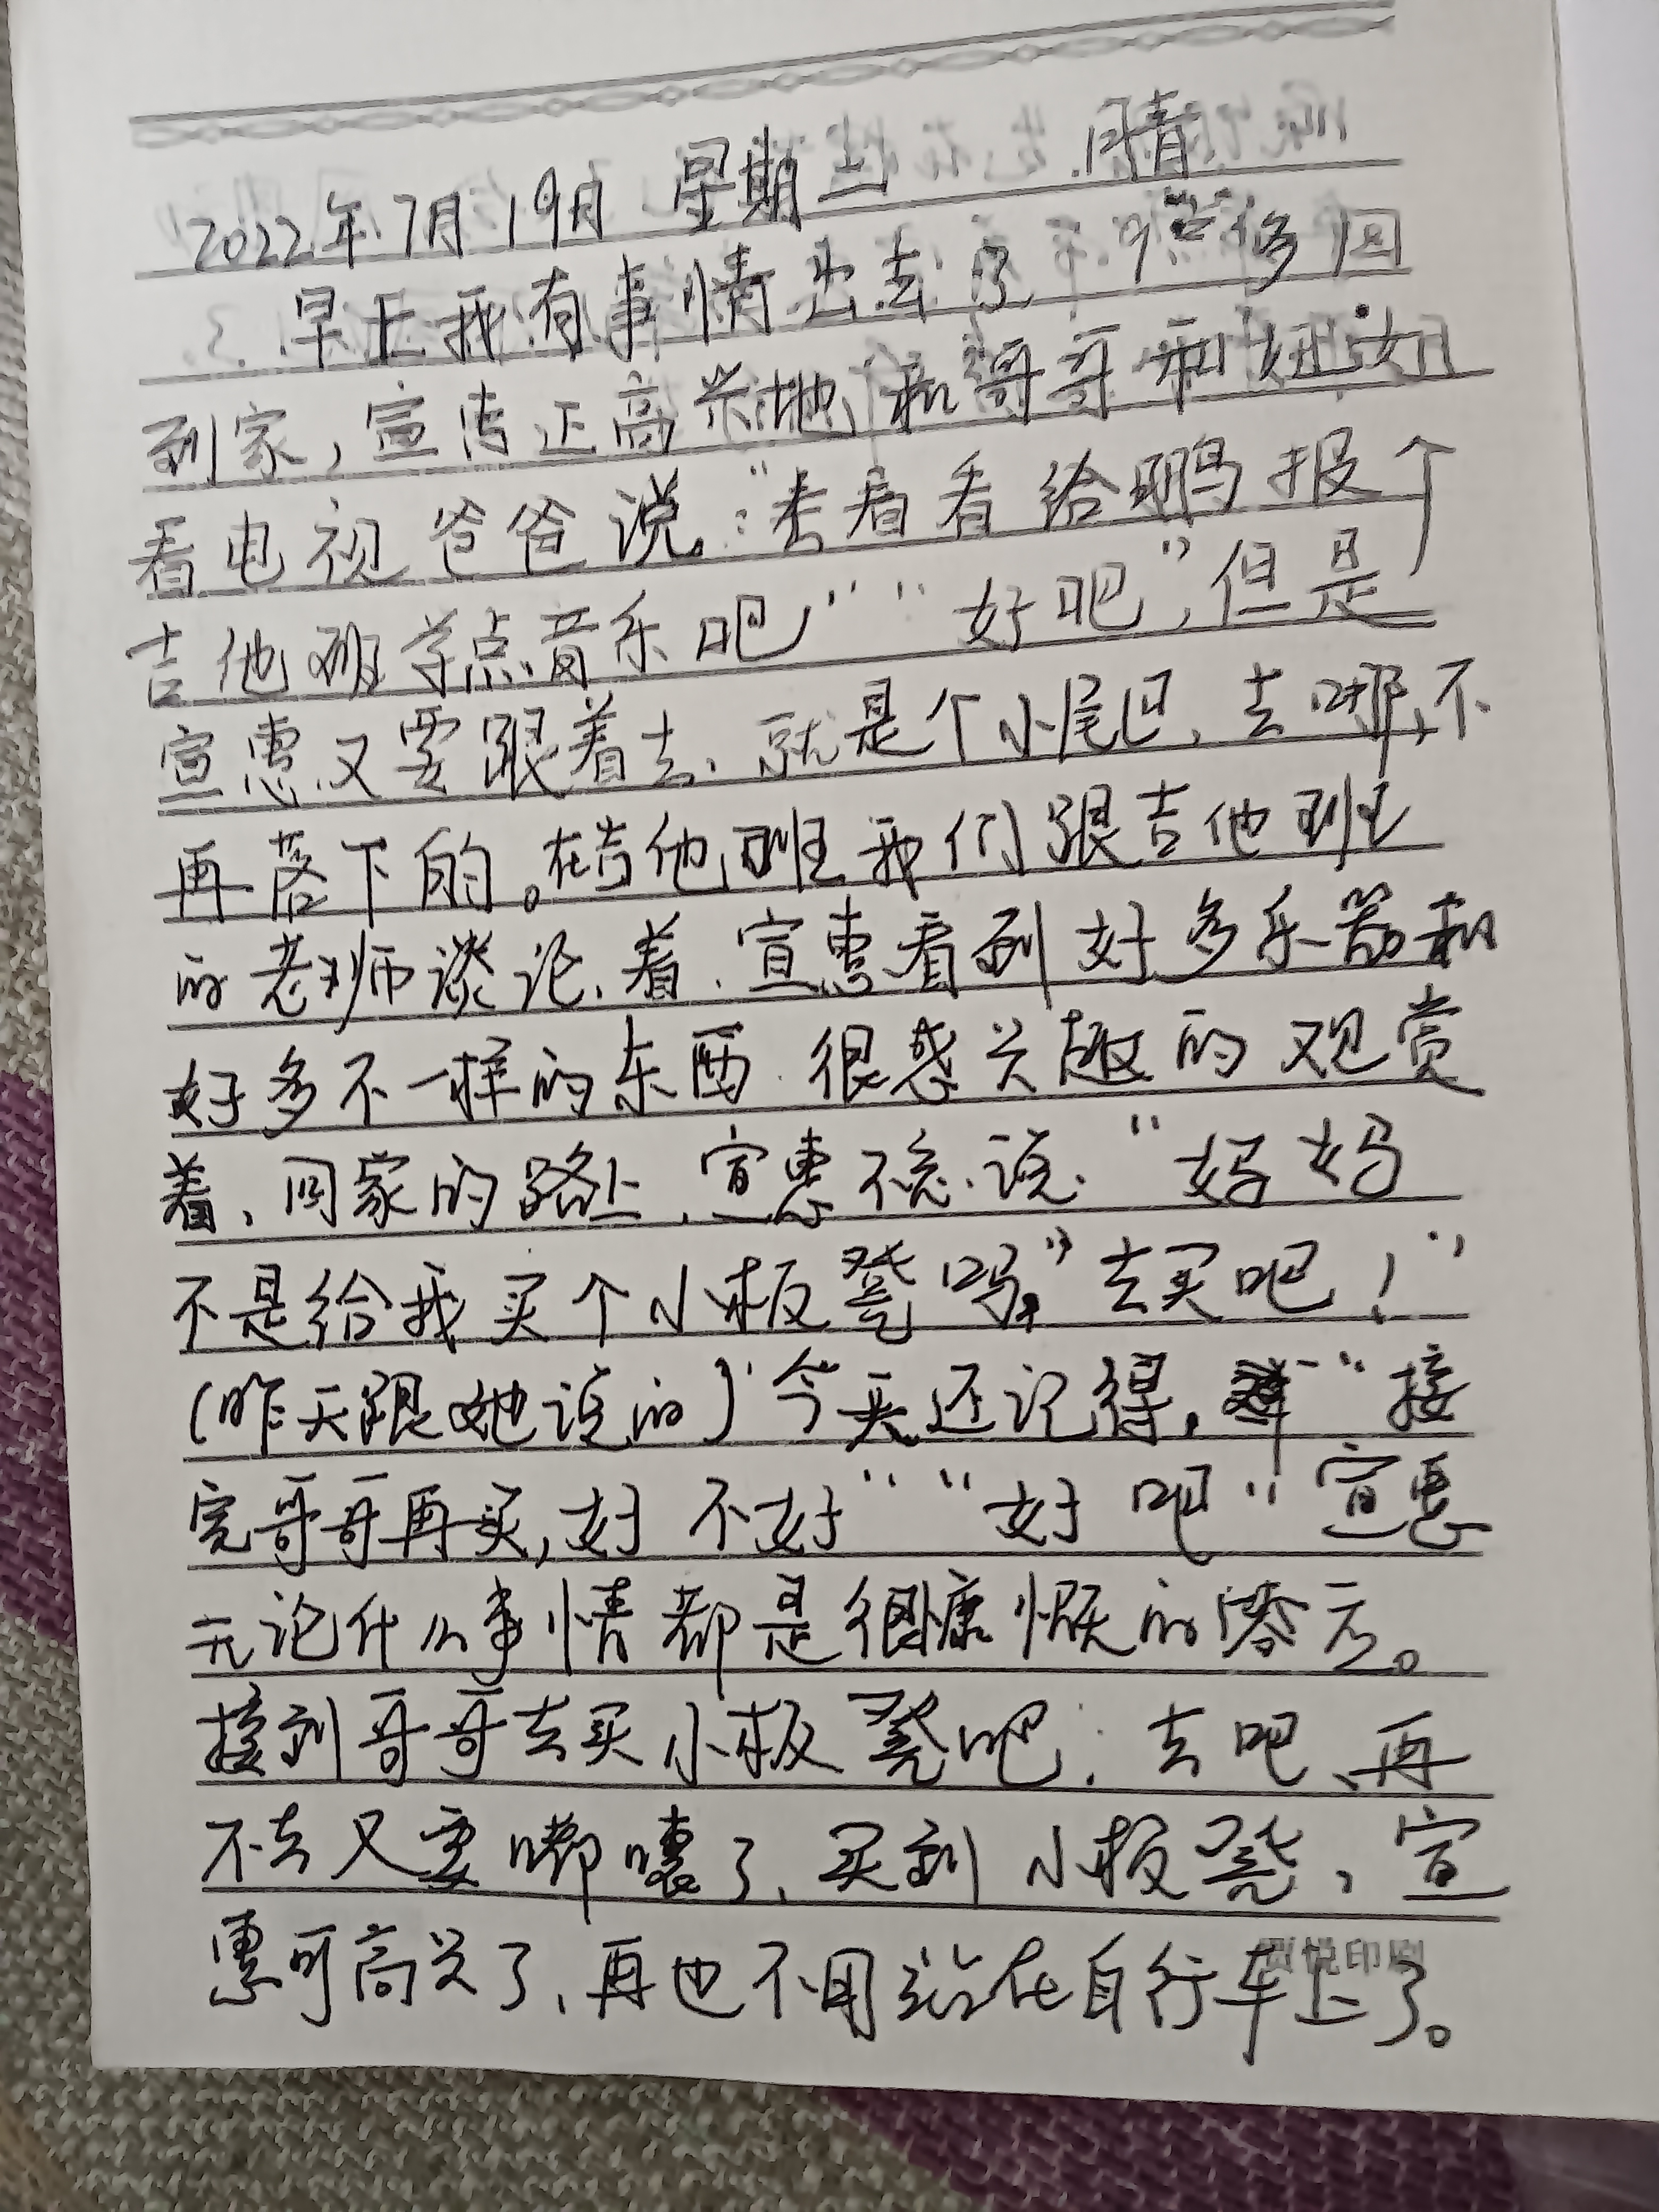 2022年7月19日 星期二 晴
早上我有事情出去了,等修回
到家,宣惠正高兴地和哥哥和姐姐
看电视爸爸说:"去看看给鹏报个
吉他班学点音乐吧,""好吧",但是
宣惠又要跟着去、就是个小尾巴,去哪,不
再落下的。在吉他班我们跟吉他班
的老师谈论着,宣惠看到好多乐器和
好多不一样的东西.很感兴趣的观赏
着,回家的路上,宣惠不忘说."妈妈
不是给我买个小板凳吗,"去买吧!"
(昨天跟她说的)今天还记得,"接
完哥哥再买,好不好""好吧"宣惠
无论什么事情都是很慷慨的答应。
接到哥哥去买小板凳吧;去吧、再
不去又要嘟嚷了,买到小板凳,宣
惠可高兴了、再也不用站在自行车上了。
悦印刷